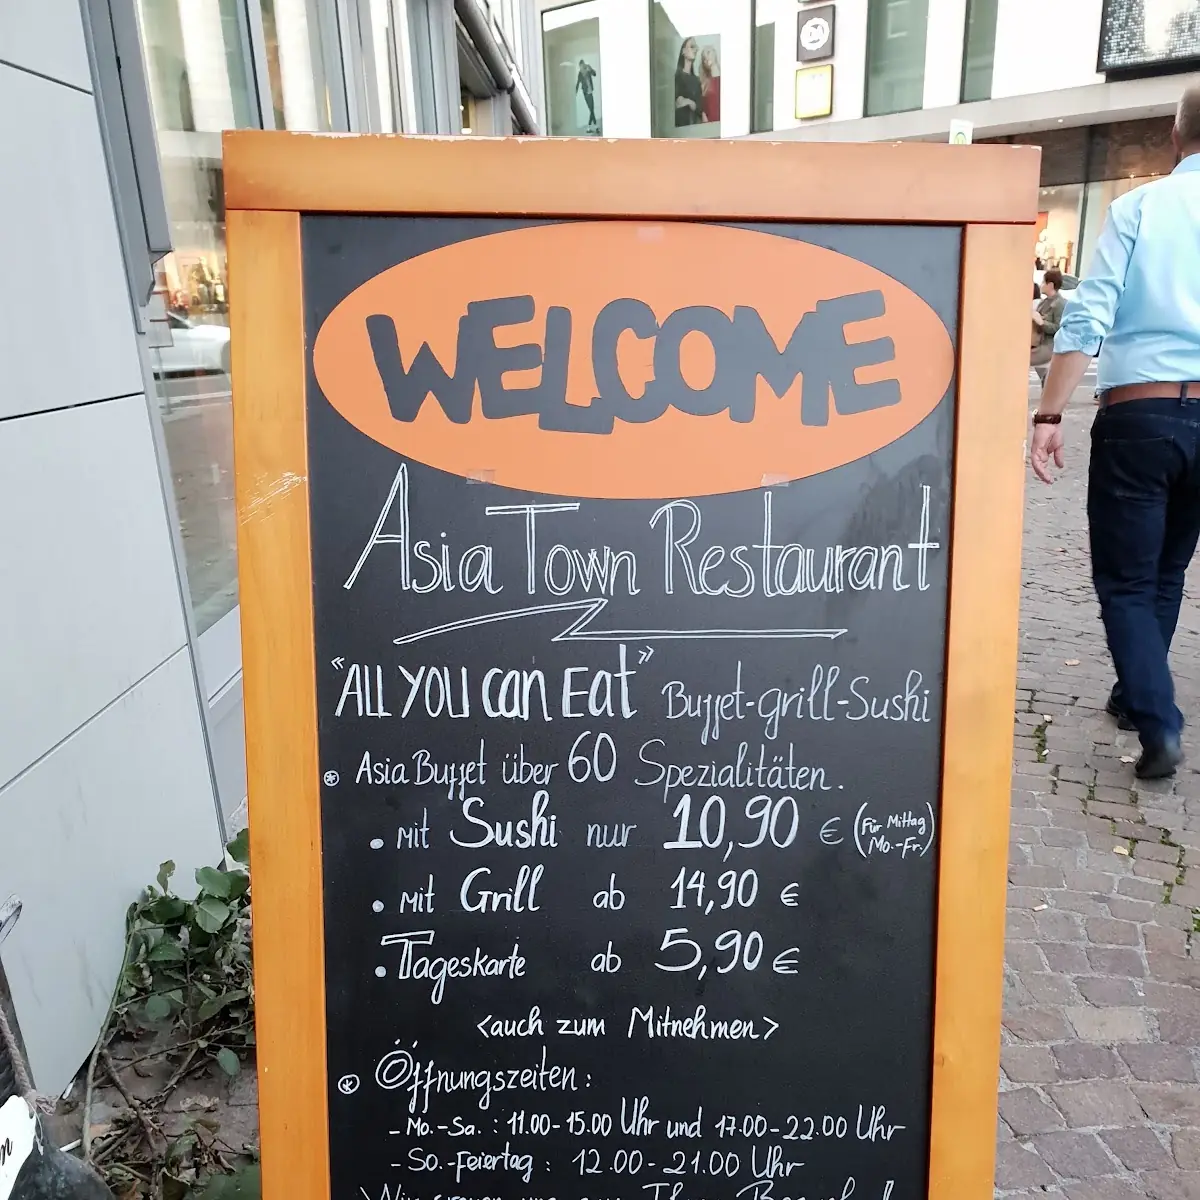 WELCOME
Asia Town Restaurant
"ALL YOU can Eat" Buffet-grill-Sushi
Asia Buffet über 60 Spezialitäten.
• mit Sushi nur 10,90 € (Für Mittag Mo.-Fr.)
• mit Grill ab 14,90 €
• Tageskarte ab 5,90 €
<auch zum Mitnehmen>
Öffnungszeiten:
- Mo.-Sa.: 11.00-15.00 Uhr und 17.00-22.00 Uhr
- So.-Feiertag: 12.00-21.00 Uhr